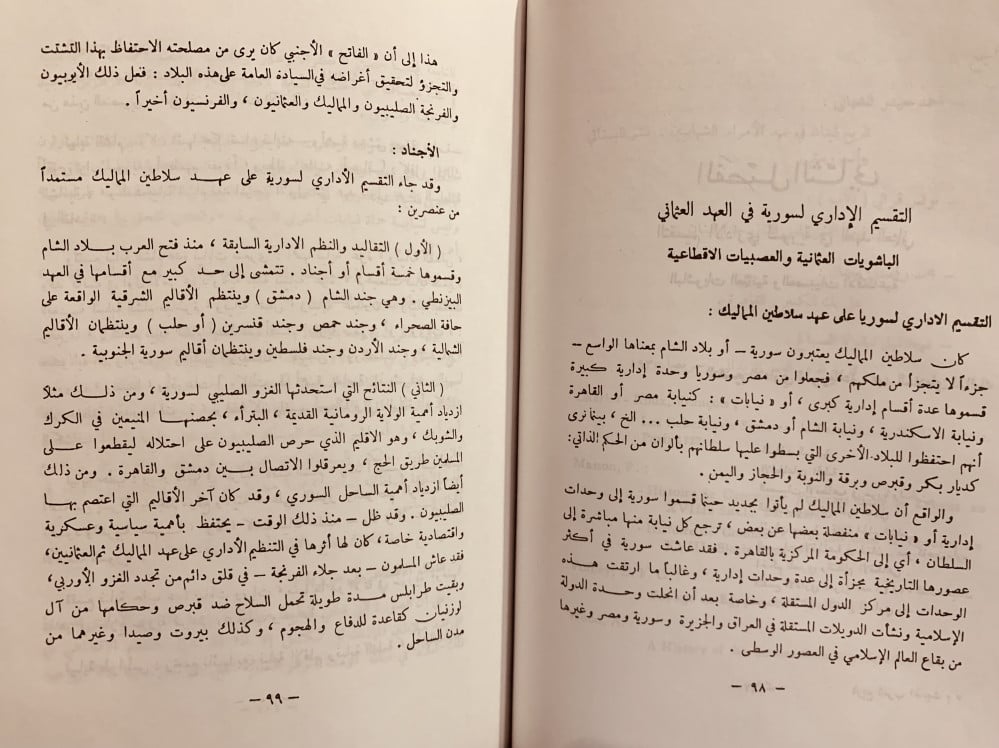 التقسيم الإداري لسورية في العهد العثماني
الباشويات العثمانية والعصبيات الاقطاعية
التقسيم الاداري لسوريا على عهد سلاطين المماليك :
كان سلاطين المماليك يعتبرون سورية – أو بلاد الشام بمعناها الواسع –
جزءاً لا يتجزأ من ملكهم ، فجعلوا من مصر وسوريا وحدة إدارية كبيرة
قسموها عدة أقسام إدارية كبرى ، أو « نيابات » : كنيابة مصر أو القاهرة
ونيابة الاسكندرية ، ونيابة الشام أو دمشق ، ونيابة حلب ... الخ ، بينما نرى
أنهم احتفظوا للبلاد الأخرى التي بسطوا عليها سلطانهم بألوان من الحكم الذاتي:
كديار بكر وقبرص وبرقة والنوبة والحجاز واليمن .
والواقع أن سلاطين المماليك لم يأتوا بجديد حينما قسموا سورية إلى وحدات
إدارية أو « نيابات » منفصلة بعضها عن بعض ، ترجع كل نيابة منها مباشرة إلى
السلطان ، أي إلى الحكومة المركزية بالقاهرة . فقد عاشت سورية في أكثر
عصورها التاريخية مجزأة إلى عدة وحدات إدارية ، وغالباً ما ارتقت هذه
الوحدات إلى مركز الدول المستقلة ، وخاصة بعد أن انحلت وحدة الدولة
الإسلامية ونشأت الدويلات المستقلة في العراق والجزيرة وسورية ومصر وغيرها
من بقاع العالم الإسلامي في العصور الوسطى .
– ٩٨ –
هذا إلى أن « الفاتح » الأجنبي كان يرى من مصلحته الاحتفاظ بهذا التشتت
والتجزؤ لتحقيق أغراضه في السيادة العامة على هذه البلاد : فعل ذلك الأيوبيون
والفرنجة الصليبيون والمماليك والعثمانيون ، والفرنسيون أخيراً .
الأجناد :
وقد جاء التقسيم الأداري لسورية على عهد سلاطين المماليك مستمداً
من عنصرين :
( الأول ) التقاليد والنظم الادارية السابقة ، منذ فتح العرب بلاد الشام
وقسموها خمسة أقسام أو أجناد . تتمشى إلى حد كبير مع أقسامها في العهد
البيزنطي . وهي جند الشام ( دمشق ) وينتظم الأقاليم الشرقية الواقعة على
حافة الصحراء ، وجند حمص وجند قنسرين ( أو حلب ) وينتظمان الأقاليم
الشمالية ، وجند الأردن وجند فلسطين وينتظمان أقاليم سورية الجنوبية .
( الثاني ) النتائج التي استحدثها الغزو الصليبي لسورية ، ومن ذلك مثلاً
ازدياد أهمية الولاية الرومانية القديمة ، البتراء ، بحصنها المنيعين في الكرك
والشوبك ، وهو الاقليم الذي حرص الصليبيون على احتلاله ليقطعوا على
المسلمين طريق الحج ، ويعرقلوا الاتصال بين دمشق والقاهرة . ومن ذلك
أيضاً ازدياد أهمية الساحل السوري ، وقد كان آخر الأقاليم التي اعتصم بها
الصليبيون . وقد ظل – منذ ذلك الوقت – يحتفظ بأهمية سياسية وعسكرية
واقتصادية خاصة ، كان لها أثرها في التنظيم الأداري على عهد المماليك ثم العثمانيين،
فقد عاش المسلمون – بعد جلاء الفرنجة – في قلق دائم من تجدد الغزو الأوربي،
وبقيت طرابلس مدة طويلة تحمل السلاح ضد قبرص وحكامها من آل
لوزنيان كقاعدة للدفاع والهجوم ، وكذلك بيروت وصيدا وغيرهما من
مدن الساحل .
– ٩٩ –